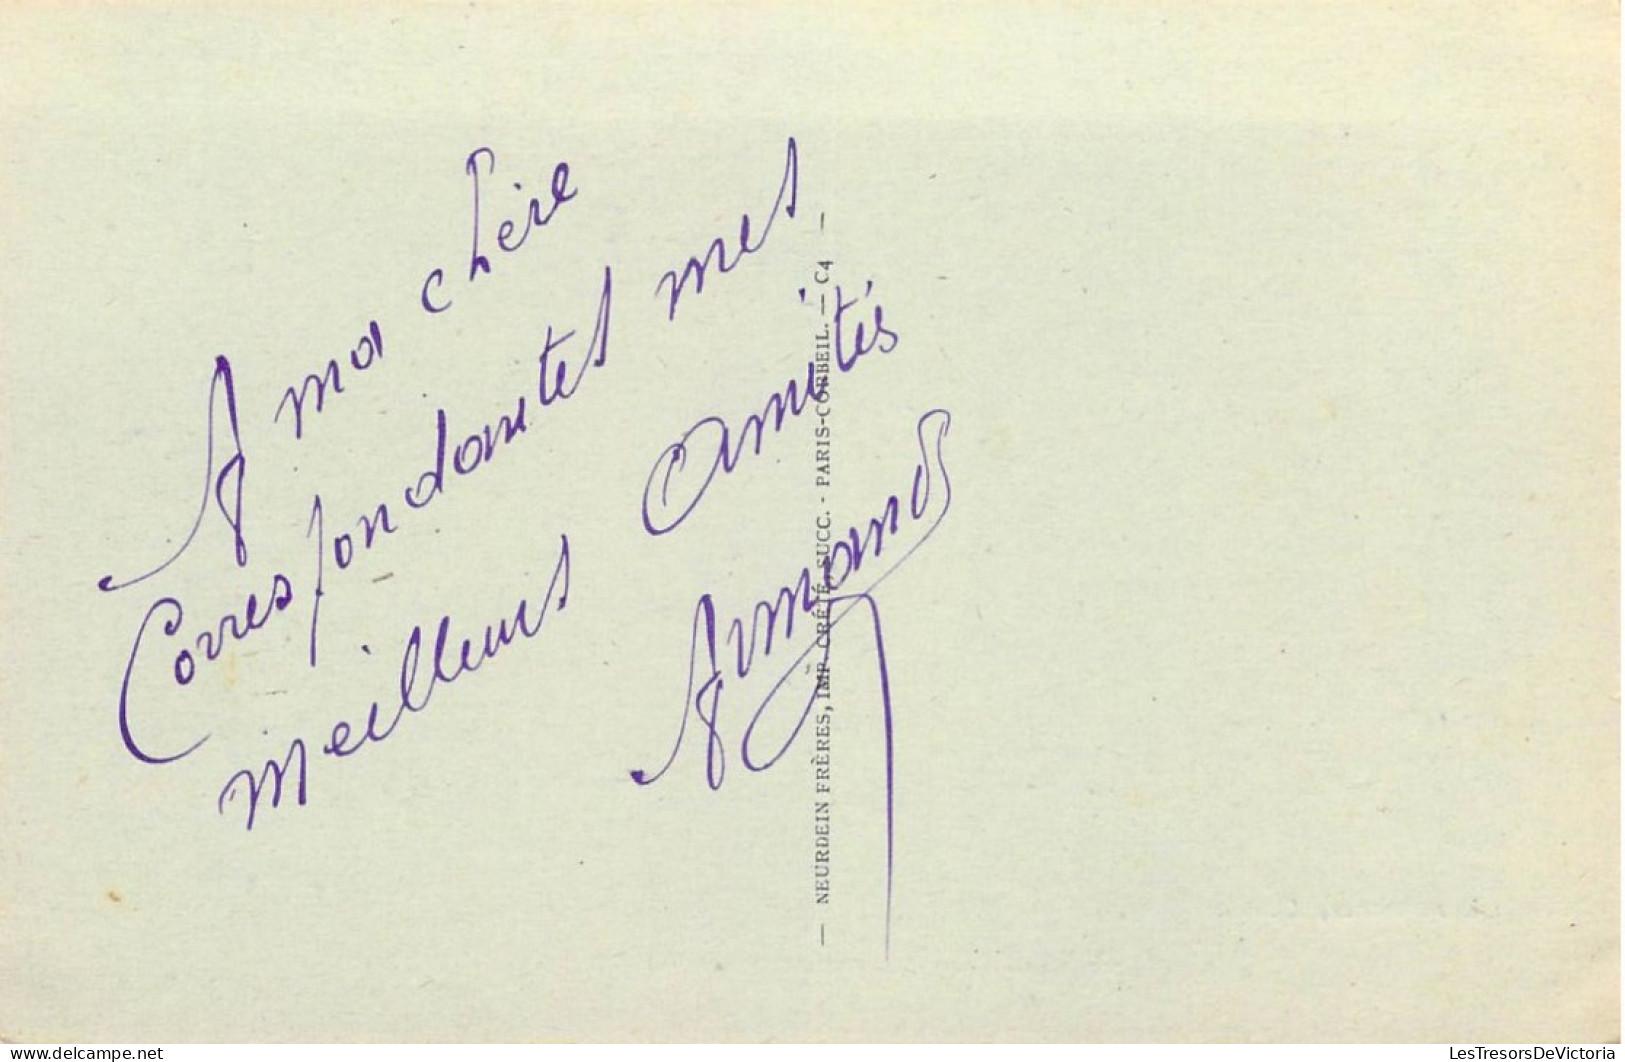 A ma chère
Correspondantes mes
meilleurs Amitiés
Armand
— NEURDEIN FRÈRES, IMP. CRÉTÉ, SUCC. - PARIS-CORBEIL. — C4 —
www.delcampe.net
LesTresorsDeVictoria